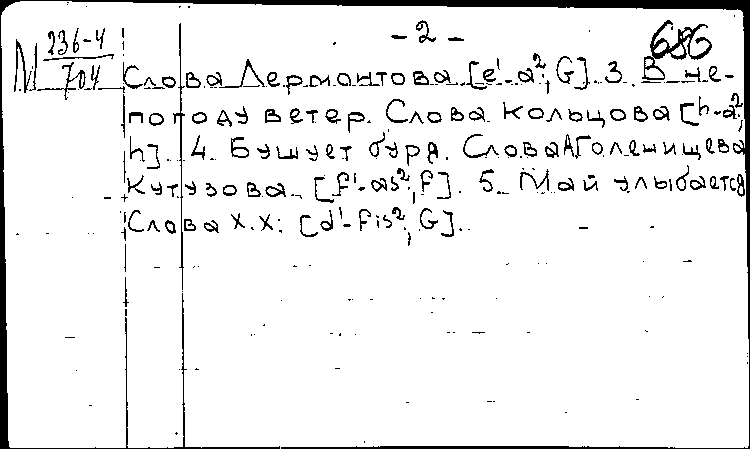 - 2 -
686
М 236-4/704
Слова Лермонтова [e¹-a²; G]. 3. В не-
погоду ветер. Слова Кольцова [h-a²;
h]. 4. Бушует буря. Слова А Голенищева
Кутузова. [f¹-as²; f]. 5. Май улыбается
Слова Х.Х: [d¹-fis²; G].